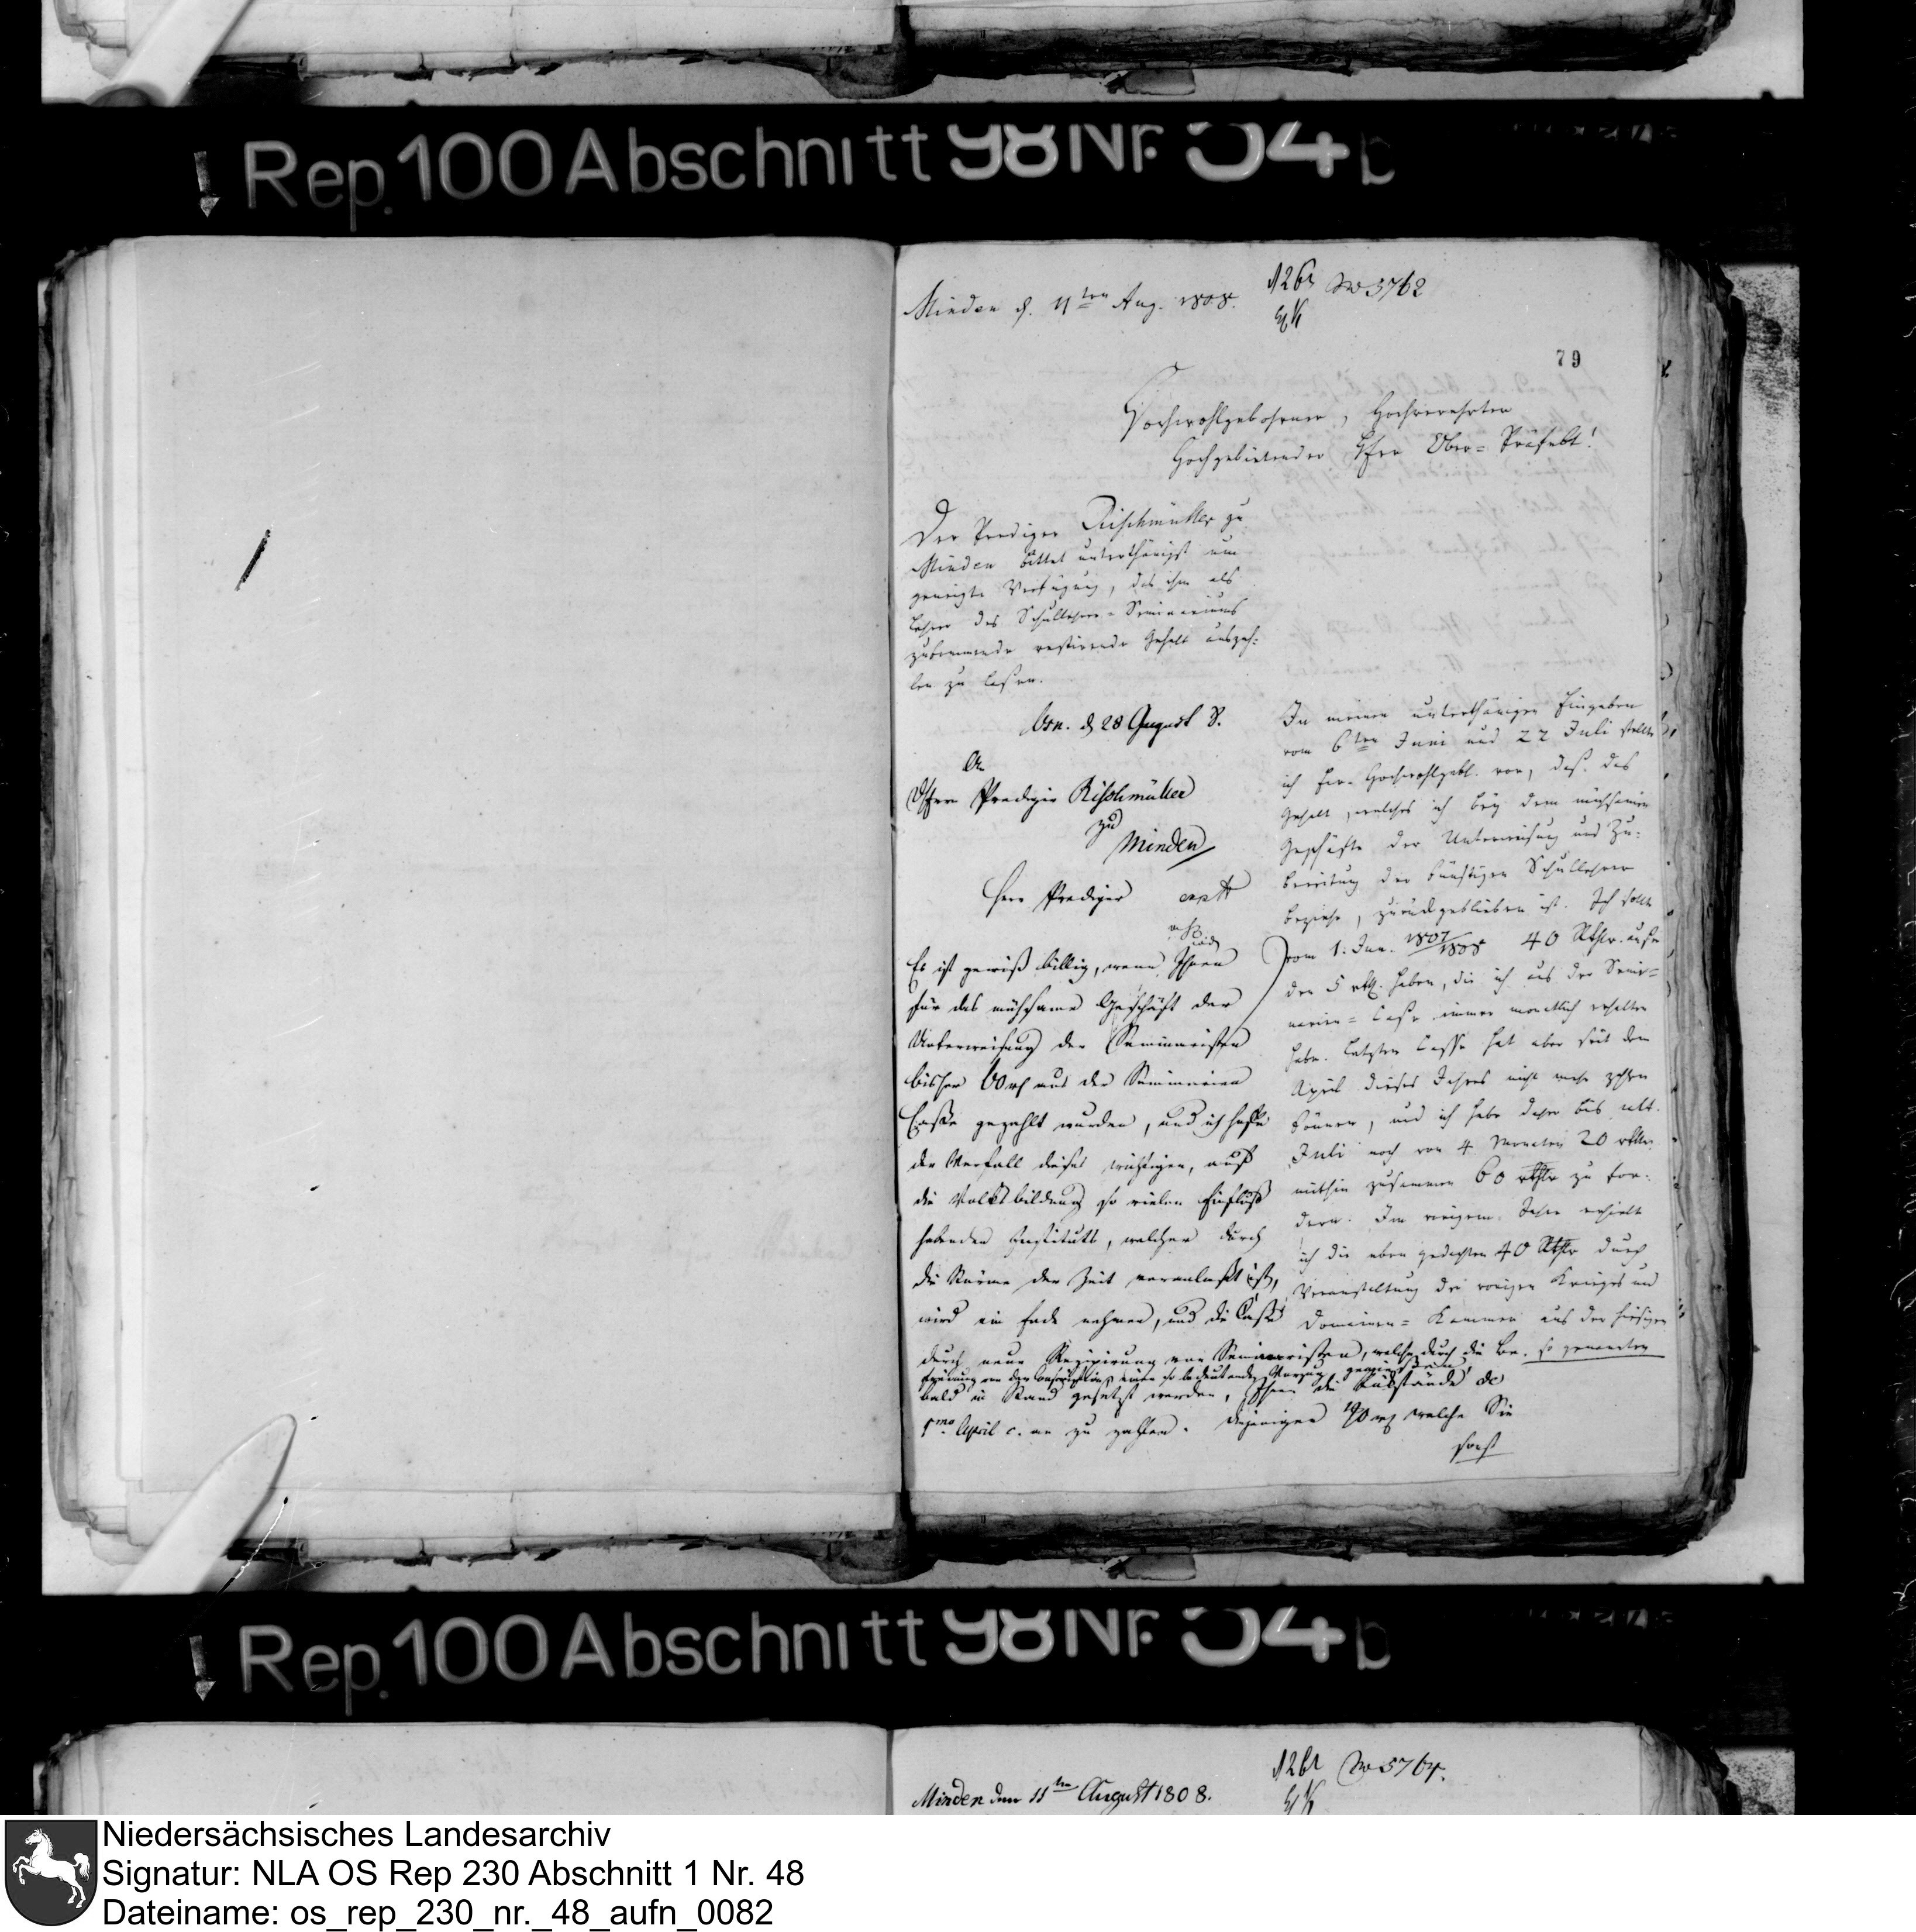 Rep. 100 Abschnitt 98 Nr. 54 b
Minden d. 11ten Aug. 1808.
No 3762
79
Hochwohlgebohrner, Hochverehrter
Hochgebietender Herr Ober-Präfekt!
Der Prediger Rischmüller zu
Minden bittet unterthänigst um
geneigte Verfügung, das ihm als
Lehrer des Schullehrer-Seminariums
zukommende restirende Gehalt auszah-
len zu laßen.
Osn. d 28 August 8.
An
Herrn Prediger Rischmüller
zu
Minden
Herr Prediger
Es ist gewiß billig, wenn Ihnen
für das mühsame Geschäft der
Unterweisung der Seminaristen
bisher 60 rt aus der Seminarien
Casse gezahlt wurden, und ich hoffe
der Verfall dieses wichtigen, auf
die Volksbildung so vielen Einfluß
habenden Instituts, welcher durch
die Stürme der Zeit veranlaßt ist,
wird ein Ende nehmen, und die Casse
durch neue Rezipirung von Seminaristen, welche durch die Be-
freiung von der Conscription einen so bedeutenden Vorzug
bald in Stand gesetzt werden, Ihnen die Rükstände de
1mo April c. an zu zahlen. Diejenigen 40 rt welche Sie
sonst
In meinen unterthänigen Eingaben
vom 6ten Juni und 22 Juli stellte
ich Ew. Hochwohlgebl. vor, daß das
Gehalt, welches ich bey dem mühsamen
Geschäfte der Unterweisung und Zu-
bereitung der künftigen Schullehrer
beziehe, zurückgeblieben ist. Ich sollte
vom 1. Jun. 1807/1808 40 Rthlr. außer
den 5 rth. haben, die ich aus der Semi-
narien-Casse immer monatlich erhalten
habe. Letztere Casse hat aber seit dem
April dieses Jahres nicht mehr zahlen
können, und ich habe daher bis ult.
Juli noch von 4 Monaten 20 rthlr.
mithin zusammen 60 rthlr zu for-
dern. Im vorigen Jahre erhielt
ich die eben gedachten 40 Rthlr durch
Veranstaltung der vorigen Krieges und
Domainen-Kammer aus der hiesigen
so genannten
Rep. 100 Abschnitt 98 Nr. 54 b
Minden den 11ten August 1808.
No 3764.
Niedersächsisches Landesarchiv
Signatur: NLA OS Rep 230 Abschnitt 1 Nr. 48
Dateiname: os_rep_230_nr._48_aufn_0082